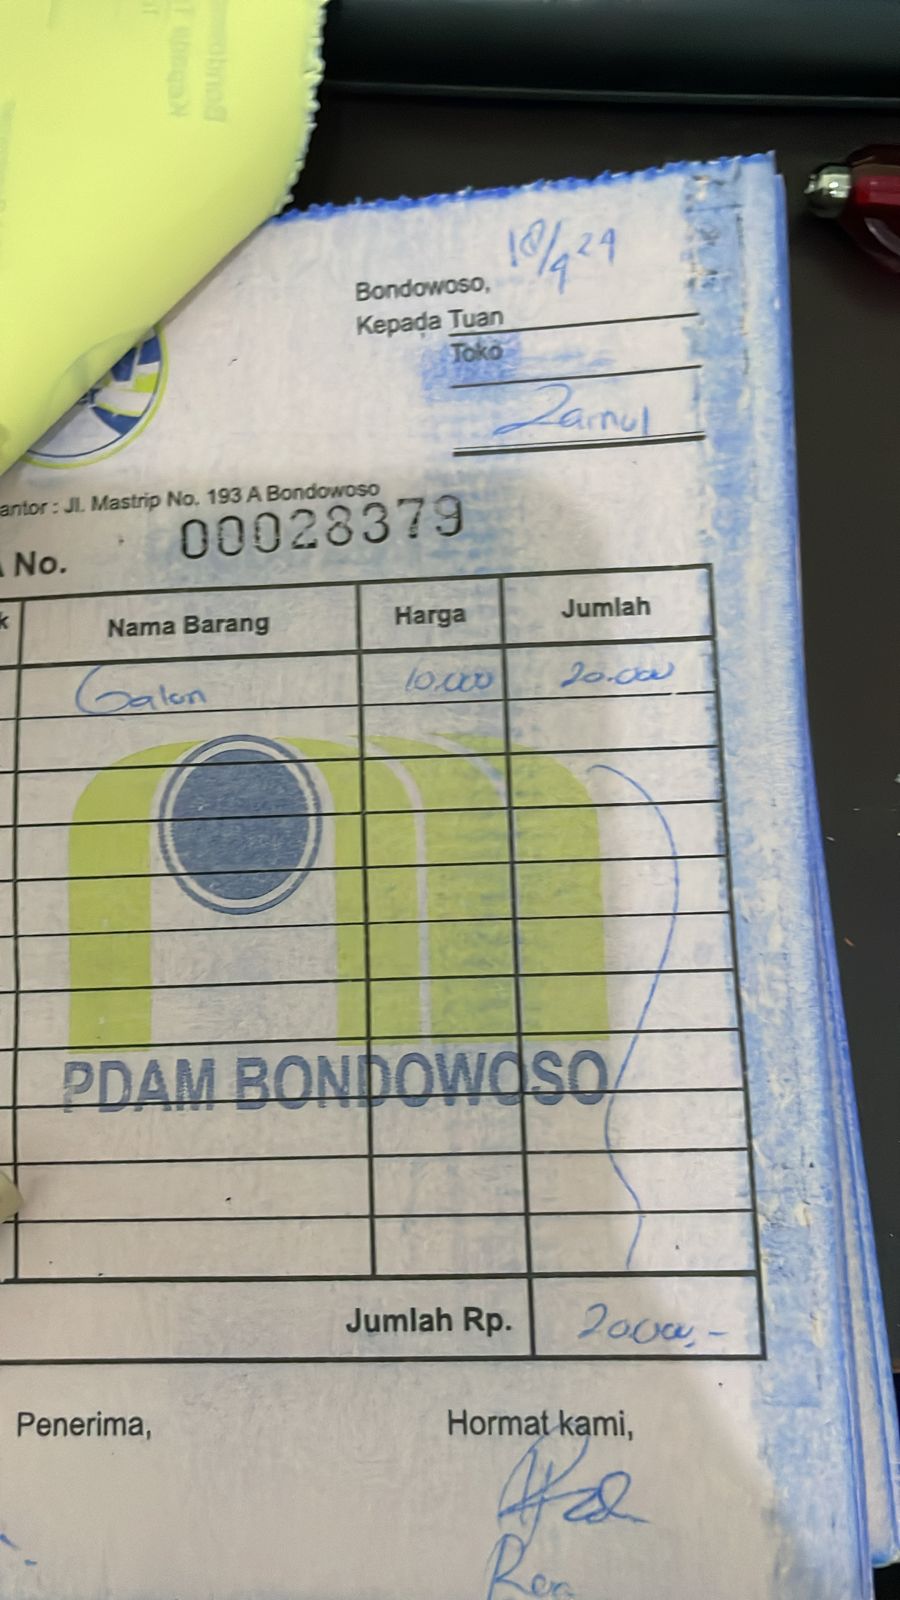 18/9 24
Bondowoso,
Kepada Tuan
Toko
Zainul
antor : Jl. Mastrip No. 193 A Bondowoso
No. 00028379
k Nama Barang Harga Jumlah
Galon 10.000 20.000
PDAM BONDOWOSO
Jumlah Rp. 20.000,-
Penerima, Hormat kami,